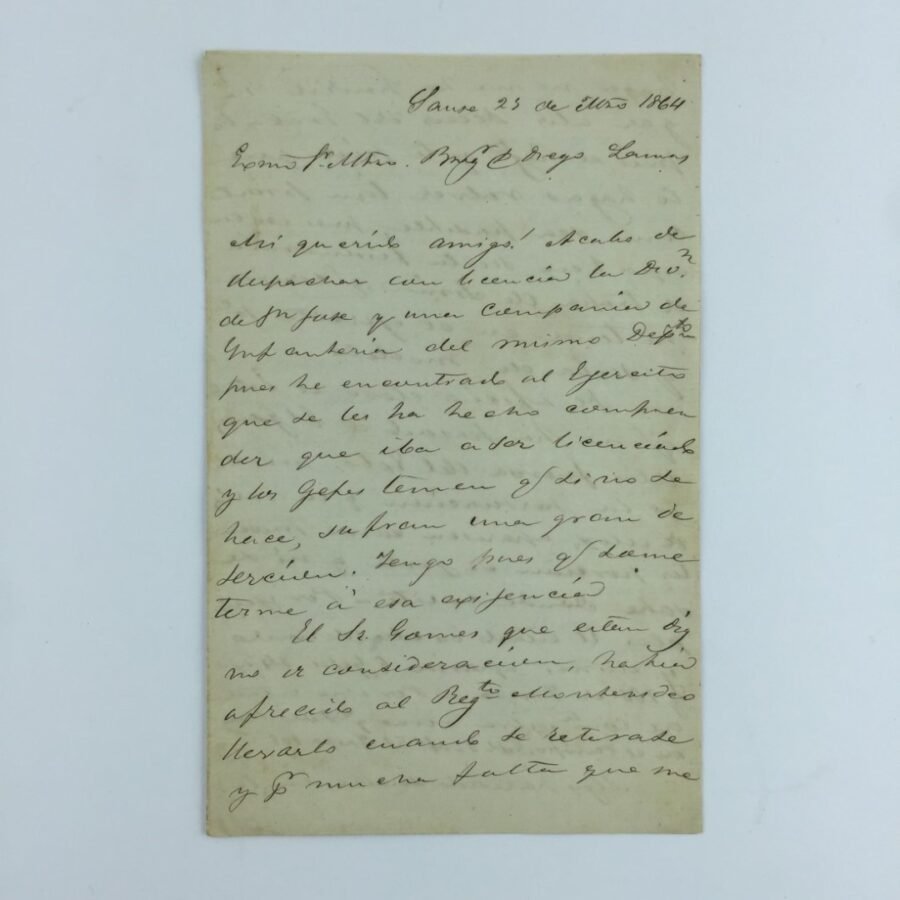 Sause 23 de Mzo 1864
Exmo Sr Mtro. Brigr D Diego Lamas
Mi querido amigo! Acabo de
despachar con licencia la Divn
de Sn Jose y una compania de
Ynfanteria del mismo Depto
pues he encontrado al Egercito
que se les ha hecho compren
der que iba a ser licenciado
y los Gefes temen q si no se
hace, sufran una gran de
sercion. Tengo pues q some
terme á esa exijencia
El Sr. Gomes que es tan dig
no de consideracion, habia
ofrecido al Regto Montevideo
llevarlo cuando se retirase
y pr mucha falta que me